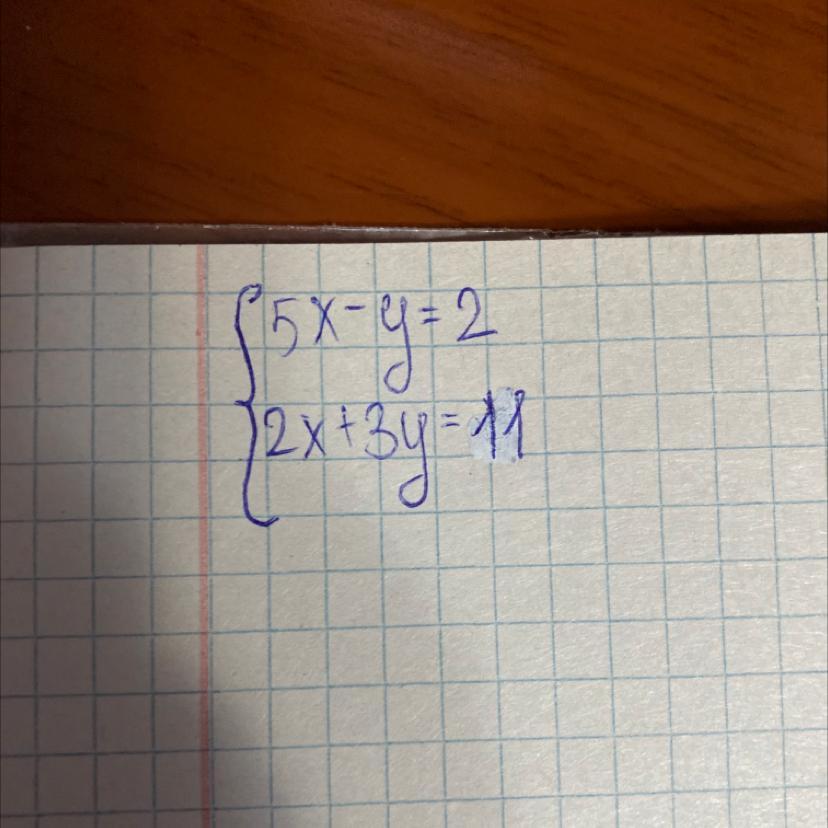 5x-y=2
2x+3y=11